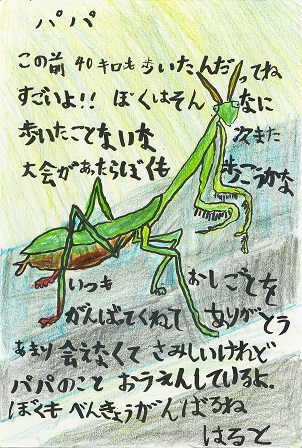 パパ
この前 40キロも歩いたんだってね
すごいよ!! ぼくはそんなに
歩いたことないな 次また
大会があったらぼくも 歩こうかな
いつも おしごとを
がんばてくれて ありがとう
あまり 会えなくて さみしいけれど
パパのこと おうえんしているよ.
ぼくも べんきょうがんばるね
はると